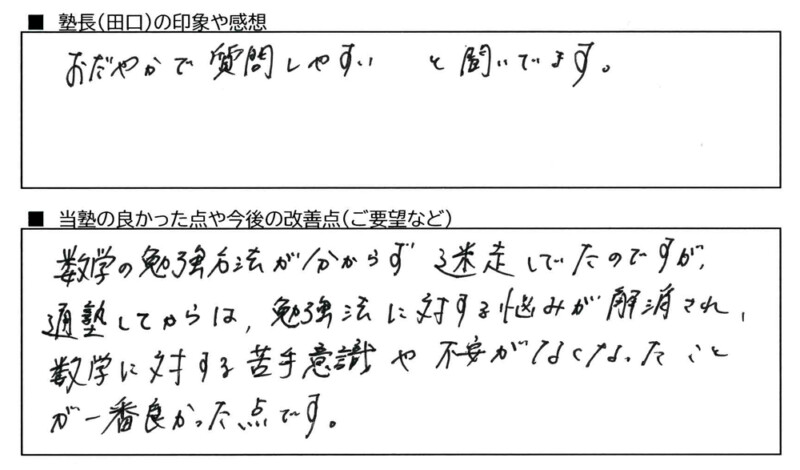 ■ 塾長(田口)の印象や感想
おだやかで質問しやすい と聞いています。
■ 当塾の良かった点や今後の改善点(ご要望など)
数学の勉強方法が分からず迷走してたのですが、
通塾してからは、勉強法に対する悩みが解消され、
数学に対する苦手意識や不安がなくなったこと
が一番良かった点です。